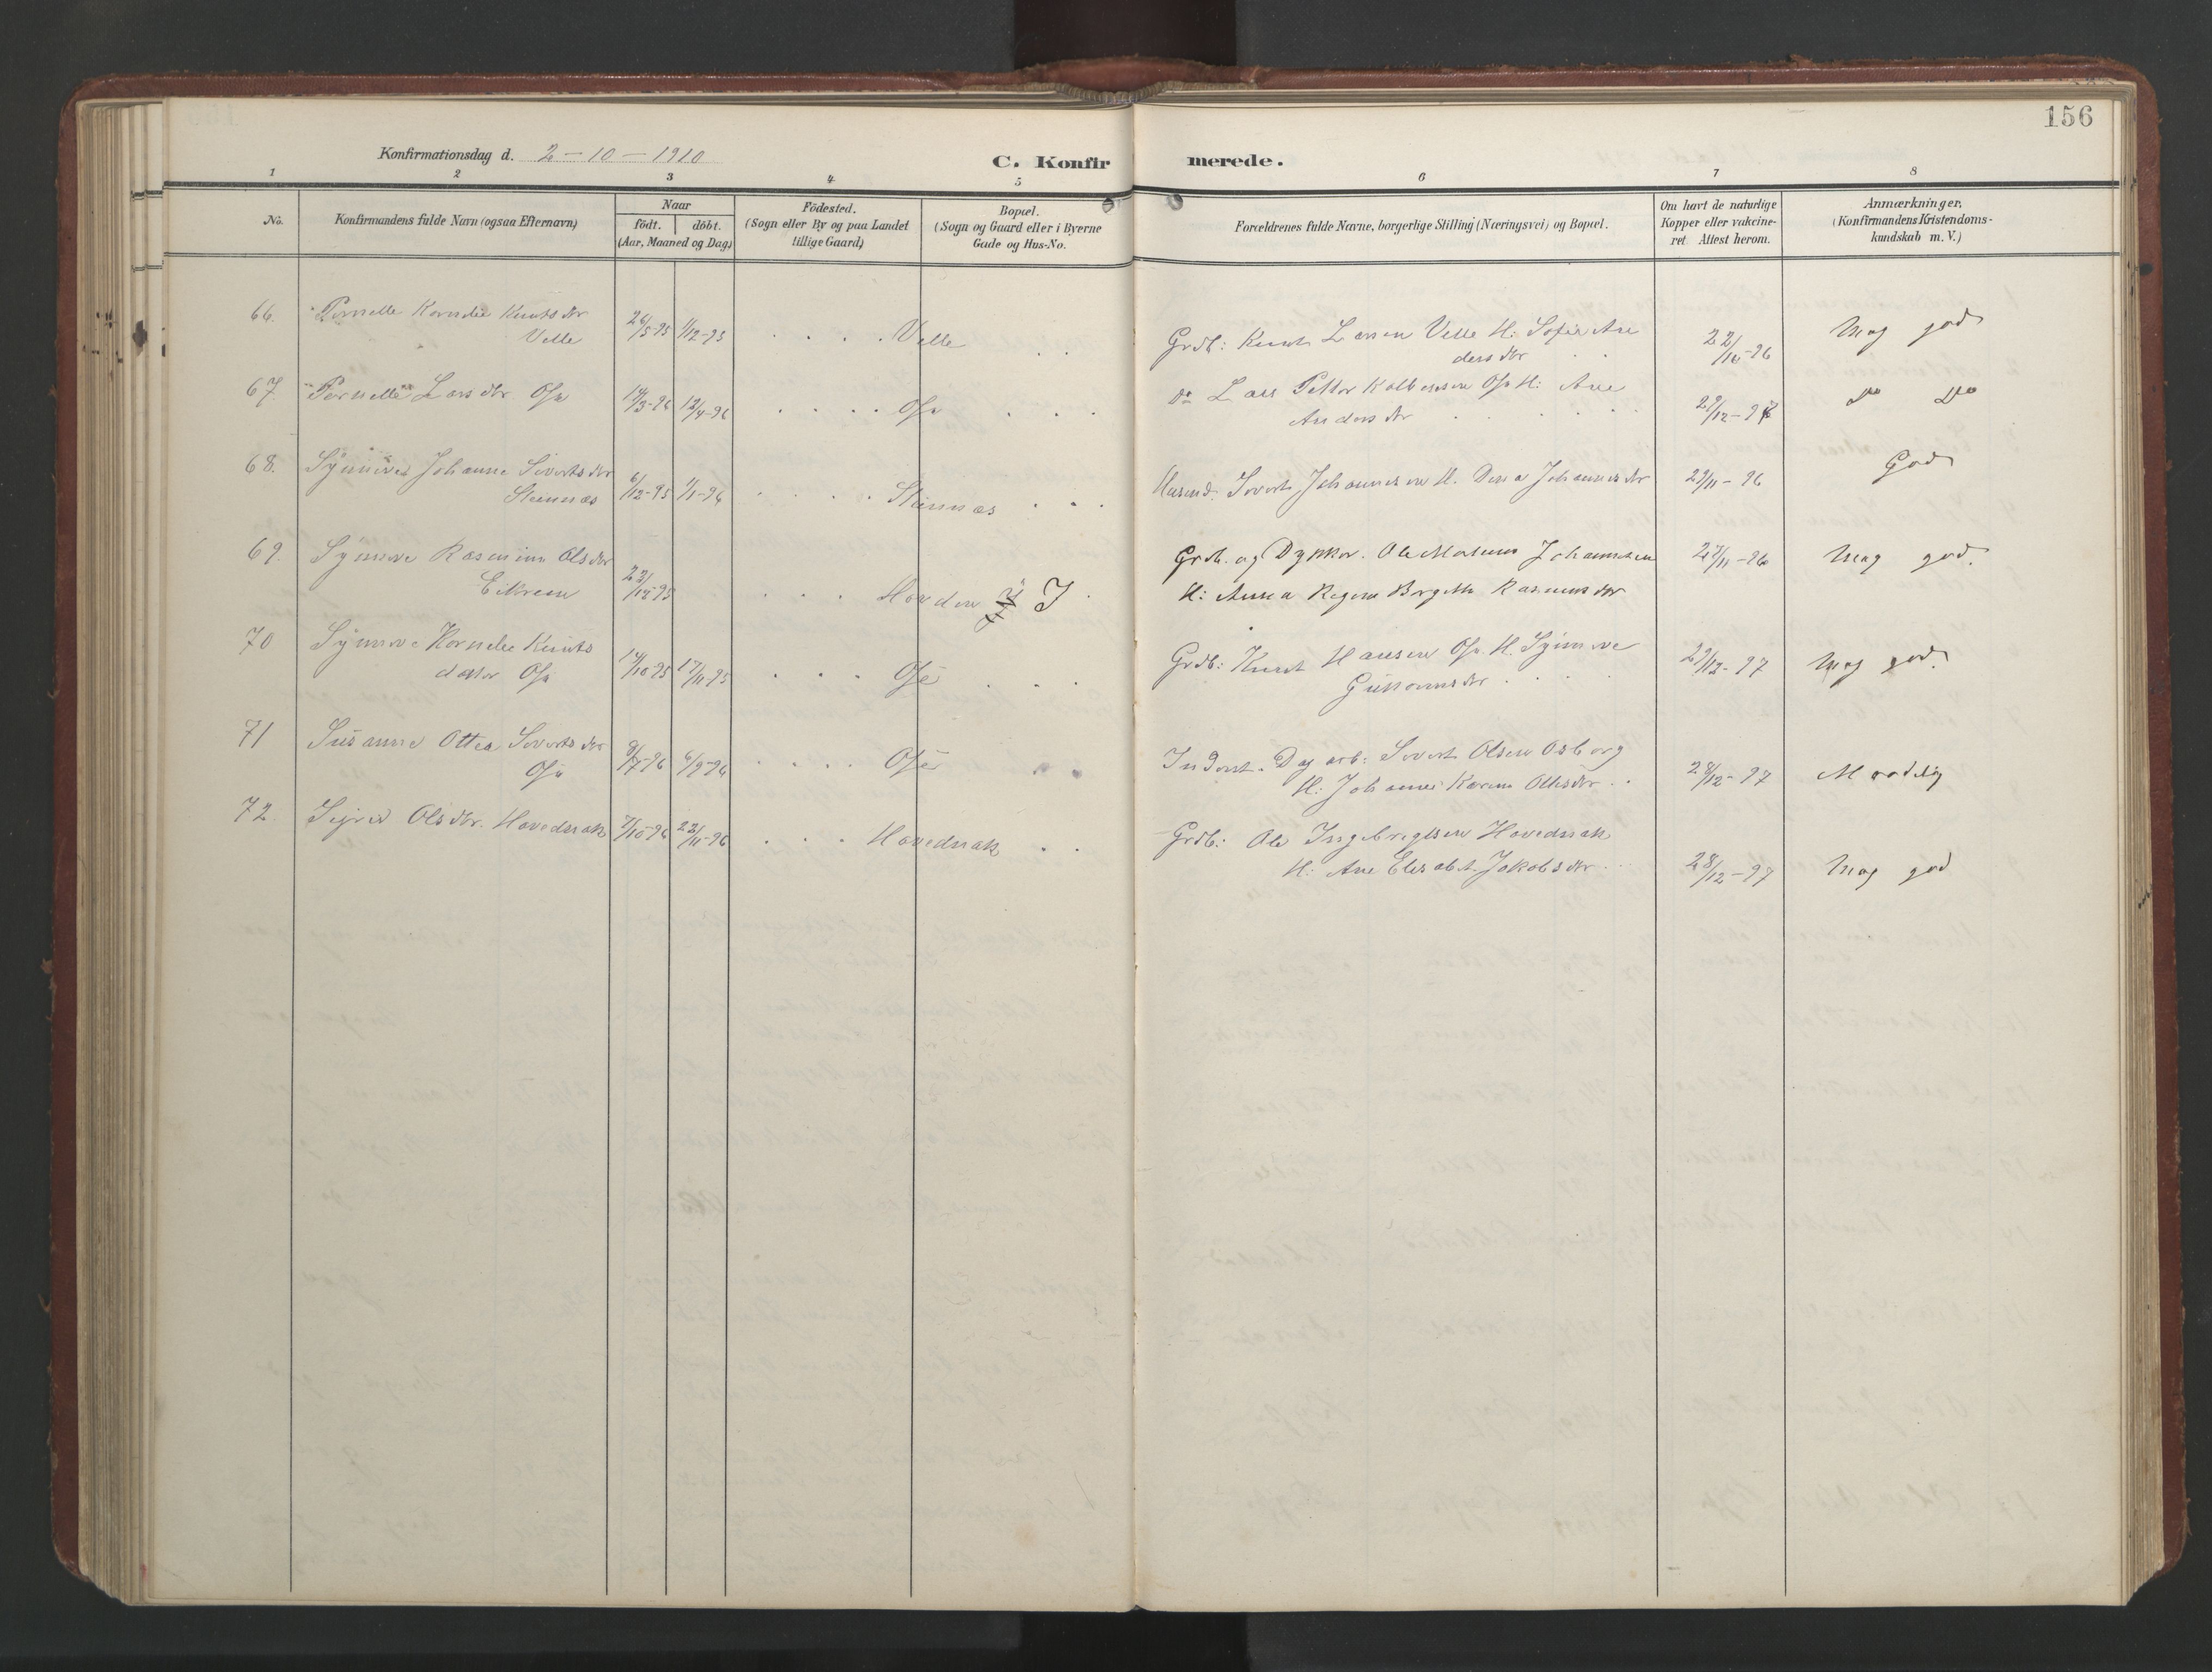 156
Konfirmationsdag d. 2-10-1910
C. Konfir
merede.
1 2 3 4 5 6 7 8
No.
Konfirmandens fulde Navn (ogsaa Efternavn)
Naar
födt. döbt.
(Aar, Maaned og Dag)
Födested.
(Sogn eller By og paa Landet
tillige Gaard)
Bopæl.
(Sogn og Gaard eller i Byerne
Gade og Hus-No.
Forældrenes fulde Navne, borgerlige Stilling (Næringsvei) og Bopæl.
Om havt de naturlige
Kopper eller vakcine-
ret. Attest herom.
Anmærkninger.
(Konfirmandens Kristendoms-
kundskab m. V.)
66. Pernelle Kornelie Knutsdtr
Velle
26/5-95 1/12-95 Velle
Grdb: Knut Larsen Velle H: Sofie An
dersdtr
22/10-96 Meg god
67. Pernelle Larsdtr Osa
14/3-96 12/4-96 Osa
do Lars Petter Kolbensen Osa H: Ane
Andersdtr
29/12-97 do do
68. Synnøve Johanne Sivertsdtr
Steinnæs
6/12-95 1/1-96 Steinnæs
Husmd. Sivert Johannesen H. Dina Johannesdtr
29/11-96 God
69. Synnøve Rasmine Olsdtr
Eikrem
23/12-95 Hovden I
Grdb. og Dypkar. Ole Martinus Johannesen
H: Anna Regine Birgitte Rasmusdtr
27/11-96 Meg god.
70 Synnøve Kornelie Knuts
datter Osa
14/10-95 17/11-95 Ose
Grdb: Knut Hansen Osa H. Synnøve
Guttormsdtr
29/12-97 Meg god.
71 Susanne Ottea Sivertsdtr
Osa
8/7-96 6/9-96 Ose
Inderst. Dagarb: Sivert Olsen Osborg
H: Johanne Karine Ottesdtr
28/12-97 Maadelig
72. Sigrid Olsdtr. Hovednak
7/10-96 22/11-96 Hovednak
Grdb: Ole Ingebrigtsen Hovednak
H: Ane Elisabet Jakobsdtr
28/12-97 Meg god